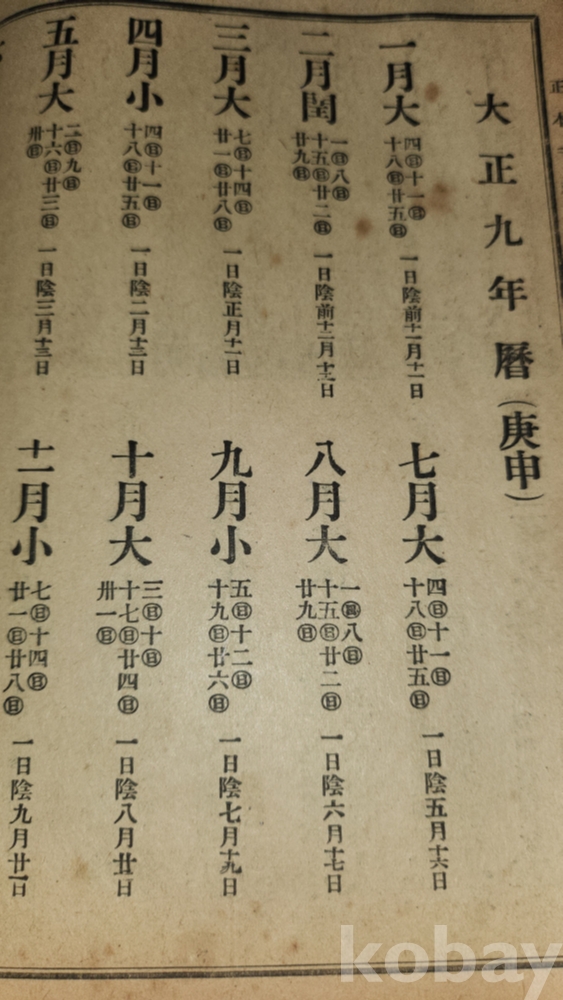 大正九年曆(庚申)
一月大
四㊐十一㊐
十八㊐廿五㊐
一日陰前十一月十一日
二月閏
一㊐八㊐
十五㊐廿二㊐
廿九㊐
一日陰前十二月十二日
三月大
七㊐十四㊐
廿一㊐廿八㊐
一日陰正月十一日
四月小
四㊐十一㊐
十八㊐廿五㊐
一日陰二月十三日
五月大
二㊐九㊐
十六㊐廿三㊐
卅㊐
一日陰三月十三日
七月大
四㊐十一㊐
十八㊐廿五㊐
一日陰五月十六日
八月大
一㊐八㊐
十五㊐廿二㊐
廿九㊐
一日陰六月十七日
九月小
五㊐十二㊐
十九㊐廿六㊐
一日陰七月十九日
十月大
三㊐十㊐
十七㊐廿四㊐
卅一㊐
一日陰八月廿日
十一月小
七㊐十四㊐
廿一㊐廿八㊐
一日陰九月廿一日
kobay